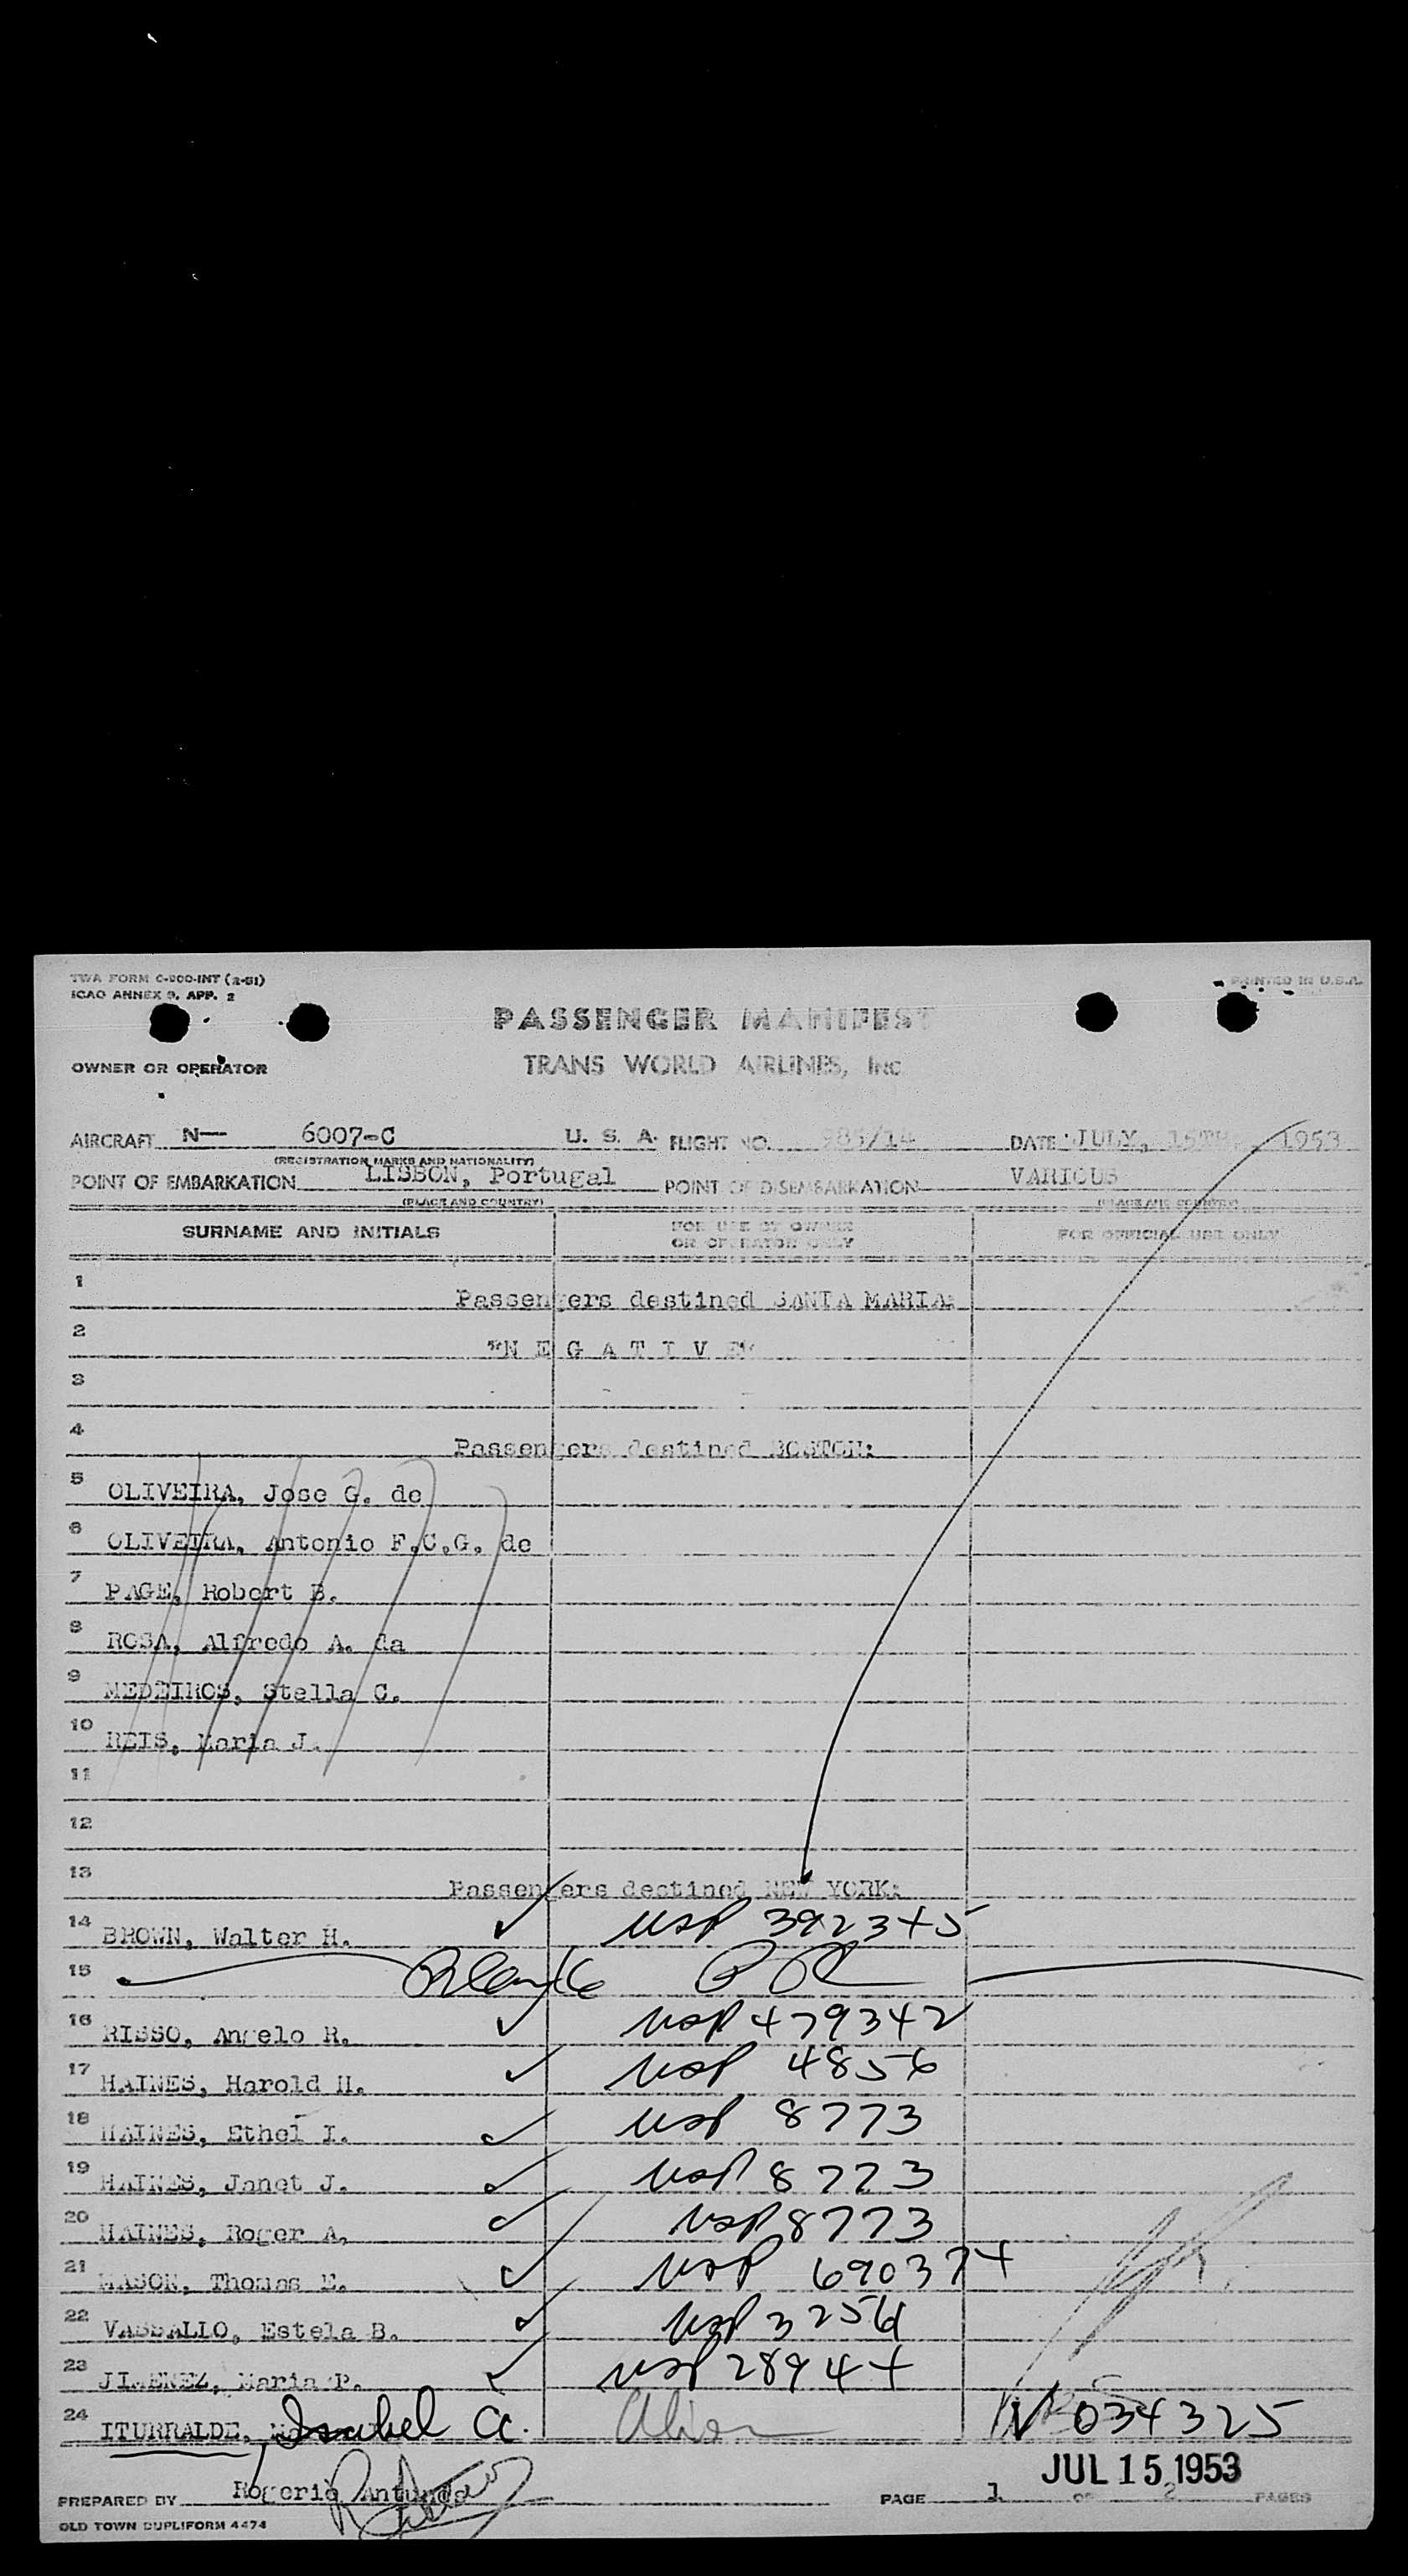 TWA FORM C-900-INT (2-51)
ICAO ANNEX 9, APP. 2
PRINTED IN U.S.A.
PASSENGER MANIFEST
OWNER OR OPERATOR
TRANS WORLD AIRLINES, INC
AIRCRAFT N— 6007-C U. S. A. FLIGHT NO. 985/14 DATE JULY, 15TH, 1953
(REGISTRATION MARKS AND NATIONALITY)
POINT OF EMBARKATION LISBON, Portugal POINT OF DISEMBARKATION VARIOUS
(PLACE AND COUNTRY) (PLACE AND COUNTRY)
SURNAME AND INITIALS FOR USE BY OWNER OR OPERATOR ONLY FOR OFFICIAL USE ONLY
1 Passengers destined SANTA MARIA:
2 "N E G A T I V E"
3
4 Passengers destined BOSTON:
5 OLIVEIRA, Jose G. de
6 OLIVEIRA, Antonio F.C.G. de
7 PAGE, Robert B.
8 ROSA, Alfredo A. da
9 MEDEIROS, Stella C.
10 REIS, Maria J.
11
12
13 Passengers destined NEW YORK:
14 BROWN, Walter H. ✓ USP 392345
15
16 RISSO, Angelo R. ✓ USP 479342
17 HAINES, Harold H. ✓ USP 4856
18 HAINES, Ethel I. ✓ USP 8773
19 HAINES, Janet J. ✓ USP 8773
20 HAINES, Roger A. ✓ USP 8773
21 MASON, Thomas E. ✓ USP 690374
22 VASSALLO, Estela B. ✓ USP 3256
23 JIMENEZ, Maria P. ✓ USP 28944
24 ITURRALDE, Isabel A. Alien V 034325
JUL 15 1953
PREPARED BY Rogerio Antunes PAGE 1 OF 2 PAGES
OLD TOWN DUPLIFORM 4474